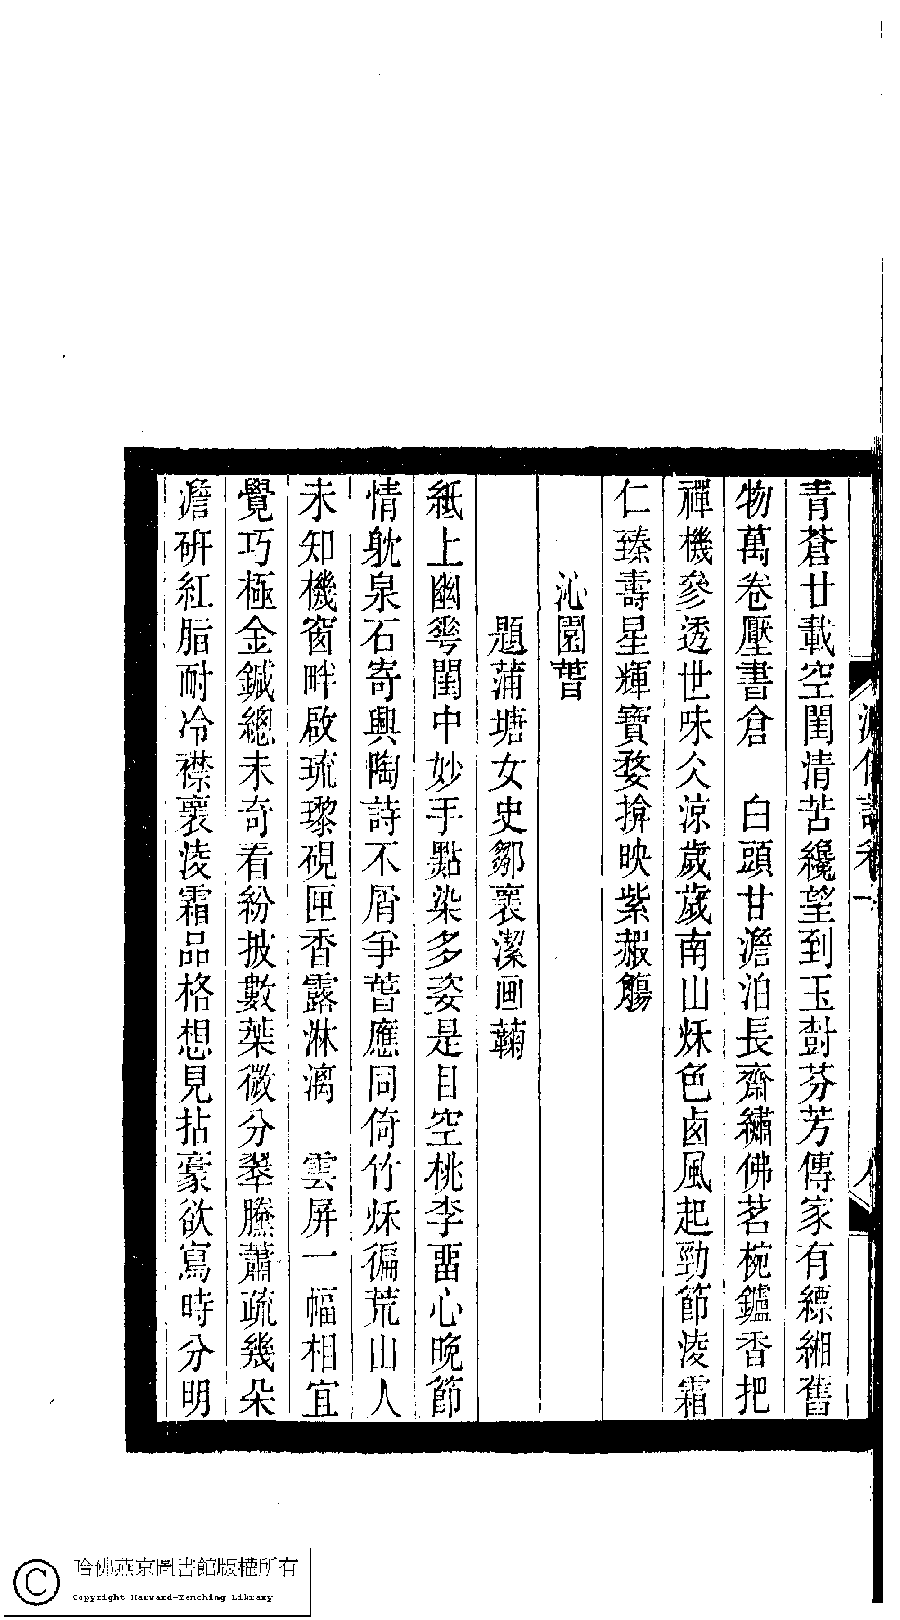 青蒼廿載空閨清苦纔望到玉尌芬芳傳家有縹緗舊
物萬卷壓書倉　白頭甘澹泊長齋繡佛茗椀鑪香把
禪機參透世味仌涼歲歲南山烁色卤風起勁節淩霜
仁臻壽星輝寶婺揜映紫赮觴
沁園萅
題蒲塘女史鄒褱潔画蘜
紙上幽蕚閨中妙手點染多姿是目空桃李畱心晚節
情躭泉石寄興陶詩不屑爭萅應同倚竹烁徧荒山人
未知機窗畔啟琉瓈硯匣香露淋漓　雲屏一幅相宜
覺巧極金鍼總未奇看紛披數葉微分翠黱蕭疏幾朵
澹研紅脂耐冷襟褱淩霜品格想見拈豪欲寫時分明
卷一
八
哈佛燕京圖書館版權所有
Copyright Harvard-Yenching Library